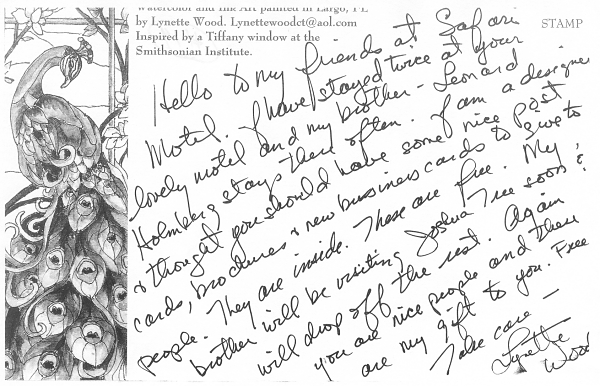 Watercolor and Ink Art painted in Largo, FL
by Lynette Wood. Lynettewoodct@aol.com
Inspired by a Tiffany window at the
Smithsonian Institute.
STAMP
Hello to my friends at Safari
Motel. I have stayed twice at your
lovely motel and my brother - Leonard
Holmberg stays there often. I am a designer
& thought you should have some nice post
cards, brochures & new business cards to give to
people. They are inside. These are free. My
brother will be visiting Joshua Tree soon &
will drop off the rest. Again
you are nice people and these
are my gift to you. Free
Take care —
Lynette
Wood